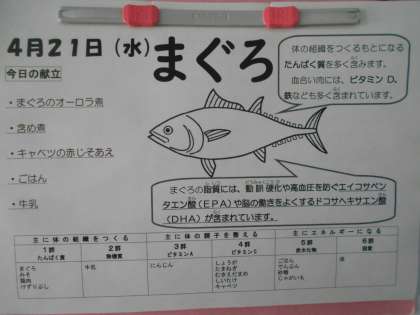 4月21日（水）
まぐろ
今日の献立
・まぐろのオーロラ煮
・含め煮
・キャベツの赤じそあえ
・ごはん
・牛乳
体の組織をつくるもとになる
たんぱく質を多く含みます。
血合い肉には、ビタミンD、
鉄なども多く含まれています。
まぐろの脂質には、動脈硬化や高血圧を防ぐエイコサペン
タエン酸（EPA）や脳の働きをよくするドコサヘキサエン酸
（DHA）が含まれています。
主に体の組織をつくる 主に体の調子を整える 主にエネルギーになる
1群 2群 3群 4群 5群 6群
たんぱく質 無機質 ビタミンA ビタミンC 炭水化物 脂質
まぐろ 牛乳 にんじん しょうが ごはん 油
みそ たまねぎ でんぷん
鶏肉 むきえだまめ 砂糖
けずりぶし しいたけ じゃがいも
キャベツ